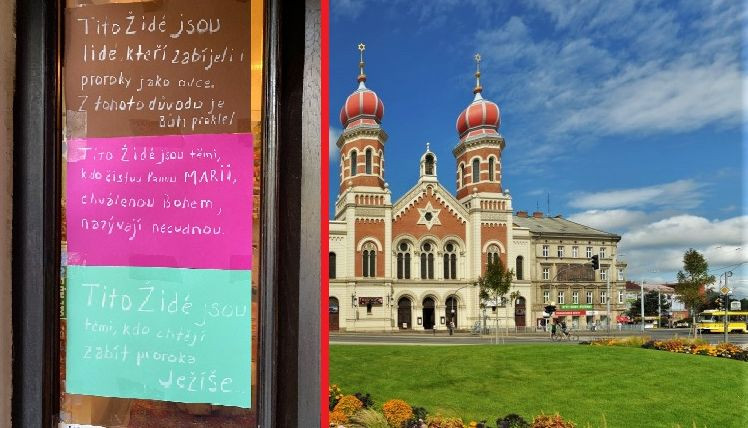 Tito Židé jsou
lidé, kteří zabíjeli i
proroky jako ovce.
Z tohoto důvodu je
Bůh proklel
Tito Židé jsou těmi,
kdo čistou Pannu MARII,
chválenou Bohem,
nazývají necudnou.
Tito Židé jsou
těmi, kdo chtějí
zabít proroka
Ježíše